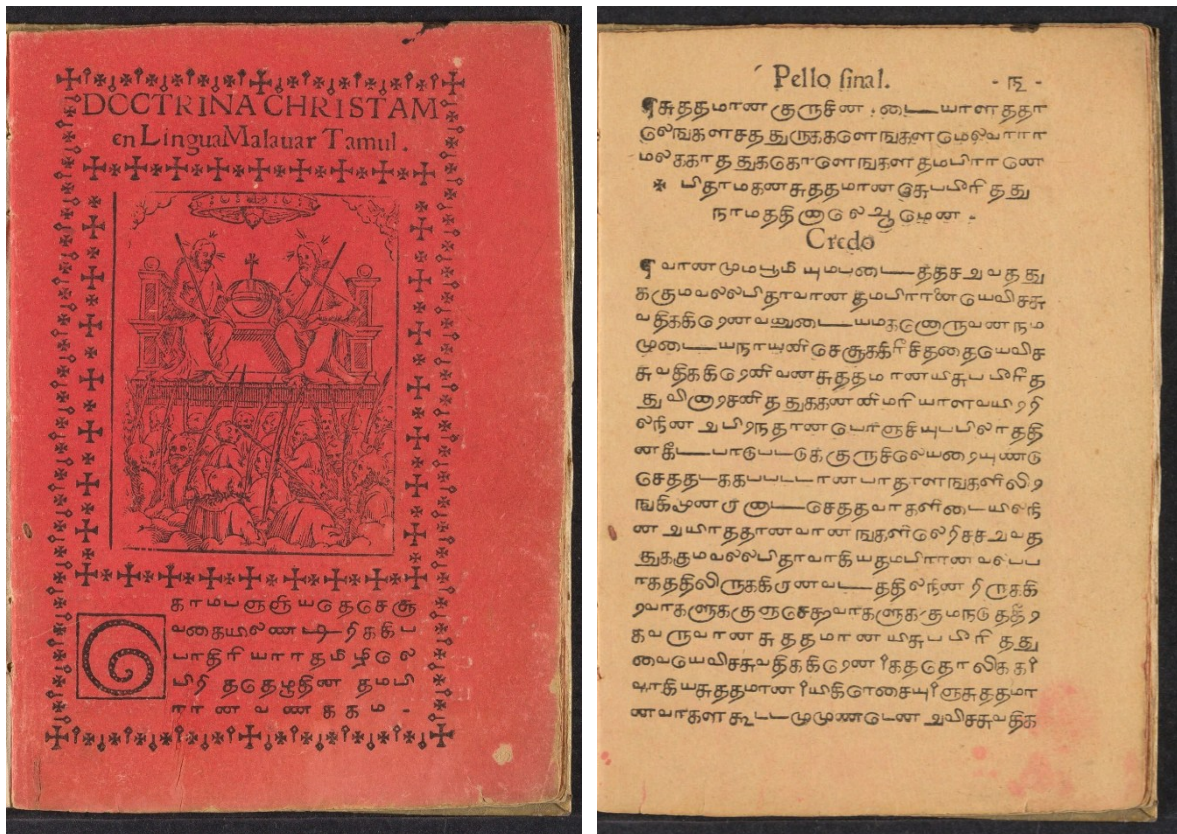 DCCTRINA CHRISTAM
en Lingua Malauar Tamul.
காமபஞஞியடெதசெசஞ
வகையிலண டிரிககிப
பாதிரியாராதமிழிலெ
பிரி தடெதழுதின தமபி
ரான வணககம.
Pello sinal.
சுததமான குருசின டையாளததா
லெஙகளசத துருககளெஙகளமெலவாரா
மலககாத துககொளெஙகளதமபிரானெ
✠ பிதாமகனசுததமானசெபபிரித து
நாமததினாலெ ஆமென.
Credo
வானமுமபூமியுமபடைத்தசஅவத து
க்குமவலலபிதாவான தமபிரானையெவிசசு
வதிககிறெனவனுடையமகனொருவனநம
முடையநாயனசெசூககிரீசிததையெவிச
சுவதிககிறெனிவனசுததமானயிசுபபிரீத
துவினாசனித துககனனிமரியாளவயிறறி
லநினஅபிறநதானபொஞசியுபபிலாததி
னகீட்பாடுபடடுககுருசிலெயறையுண்டு
செததடககபபடடானபாதாளஙகளிலிற
ஙகிமூனறானாடசெததவாகளிடையிலநி
னஅயாததானவானஙகளிலெறிசசஅவத
துககுமவலலபிதாவாகியதமபிரானவலபப
ாகததிலிருககிறானவடததிலநினறிருககி
றவாகளுககுஞசெததவாகளுககுநதமநடுததீர
கவருவானசுததமானயிசுபபிரிதது
வையெவிசசுவதிககிறெனகததொலிககா
வாகியசுததமானயிகிறெசையுஞசுததமா
னவாகளகூடடமுமுணடெனஅவிசசுவதிக